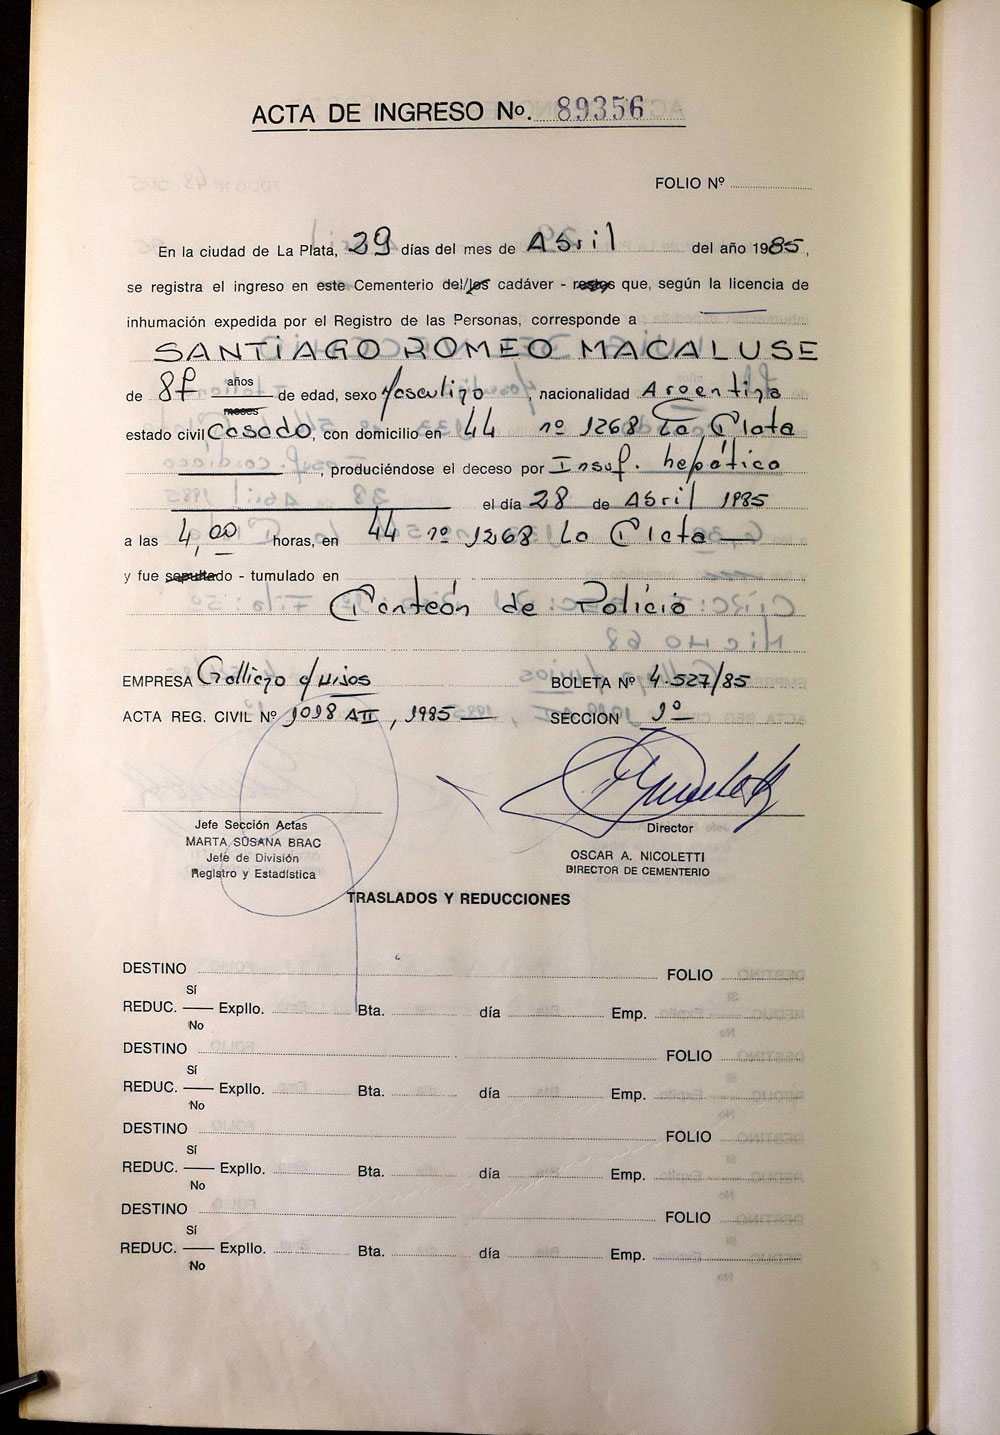 ACTA DE INGRESO Nº. 89356
FOLIO Nº
En la ciudad de La Plata, 29 días del mes de Abril del año 1985,
se registra el ingreso en este Cementerio del/los cadáver - restos que, según la licencia de
inhumación expedida por el Registro de las Personas, corresponde a
SANTIAGO ROMEO MACALUSE
de años de edad, sexo Masculino, nacionalidad Argentina
meses
estado civil Casado, con domicilio en 44 nº 1268 La Plata
, produciéndose el deceso por Insuf. hepática
el día 28 de Abril 1985
a las 4,00 horas, en 44 nº 1268 La Plata
y fue sepultado - tumulado en
Panteón de Policía
EMPRESA e/Hijos BOLETA Nº 4.527/85
ACTA REG. CIVIL Nº 1018 AII, 1985 SECCION 1º
Jefe Sección Actas Director
MARTA SUSANA BRAC OSCAR A. NICOLETTI
Jefe de División DIRECTOR DE CEMENTERIO
Registro y Estadística
TRASLADOS Y REDUCCIONES
DESTINO FOLIO
Sí
REDUC. Expllo. Bta. día Emp.
No
DESTINO FOLIO
Sí
REDUC. Expllo. Bta. día Emp.
No
DESTINO FOLIO
Sí
REDUC. Expllo. Bta. día Emp.
No
DESTINO FOLIO
Sí
REDUC. Expllo. Bta. día Emp.
No